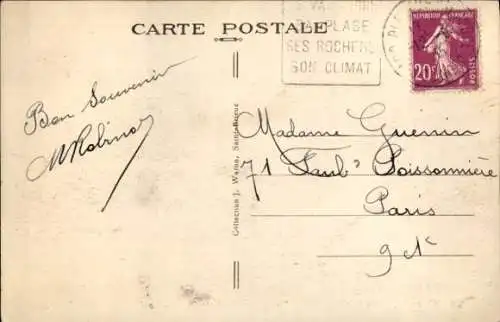 CARTE POSTALE
SA PLAGE
SES ROCHERS
SON CLIMAT
RÉPUBLIQUE FRANÇAISE
20c
POSTES
Bon Souvenir
Madame Guenin
71 Faubg Poissonnière
Paris
9e
Collection J. Waron, Saint-Brieuc